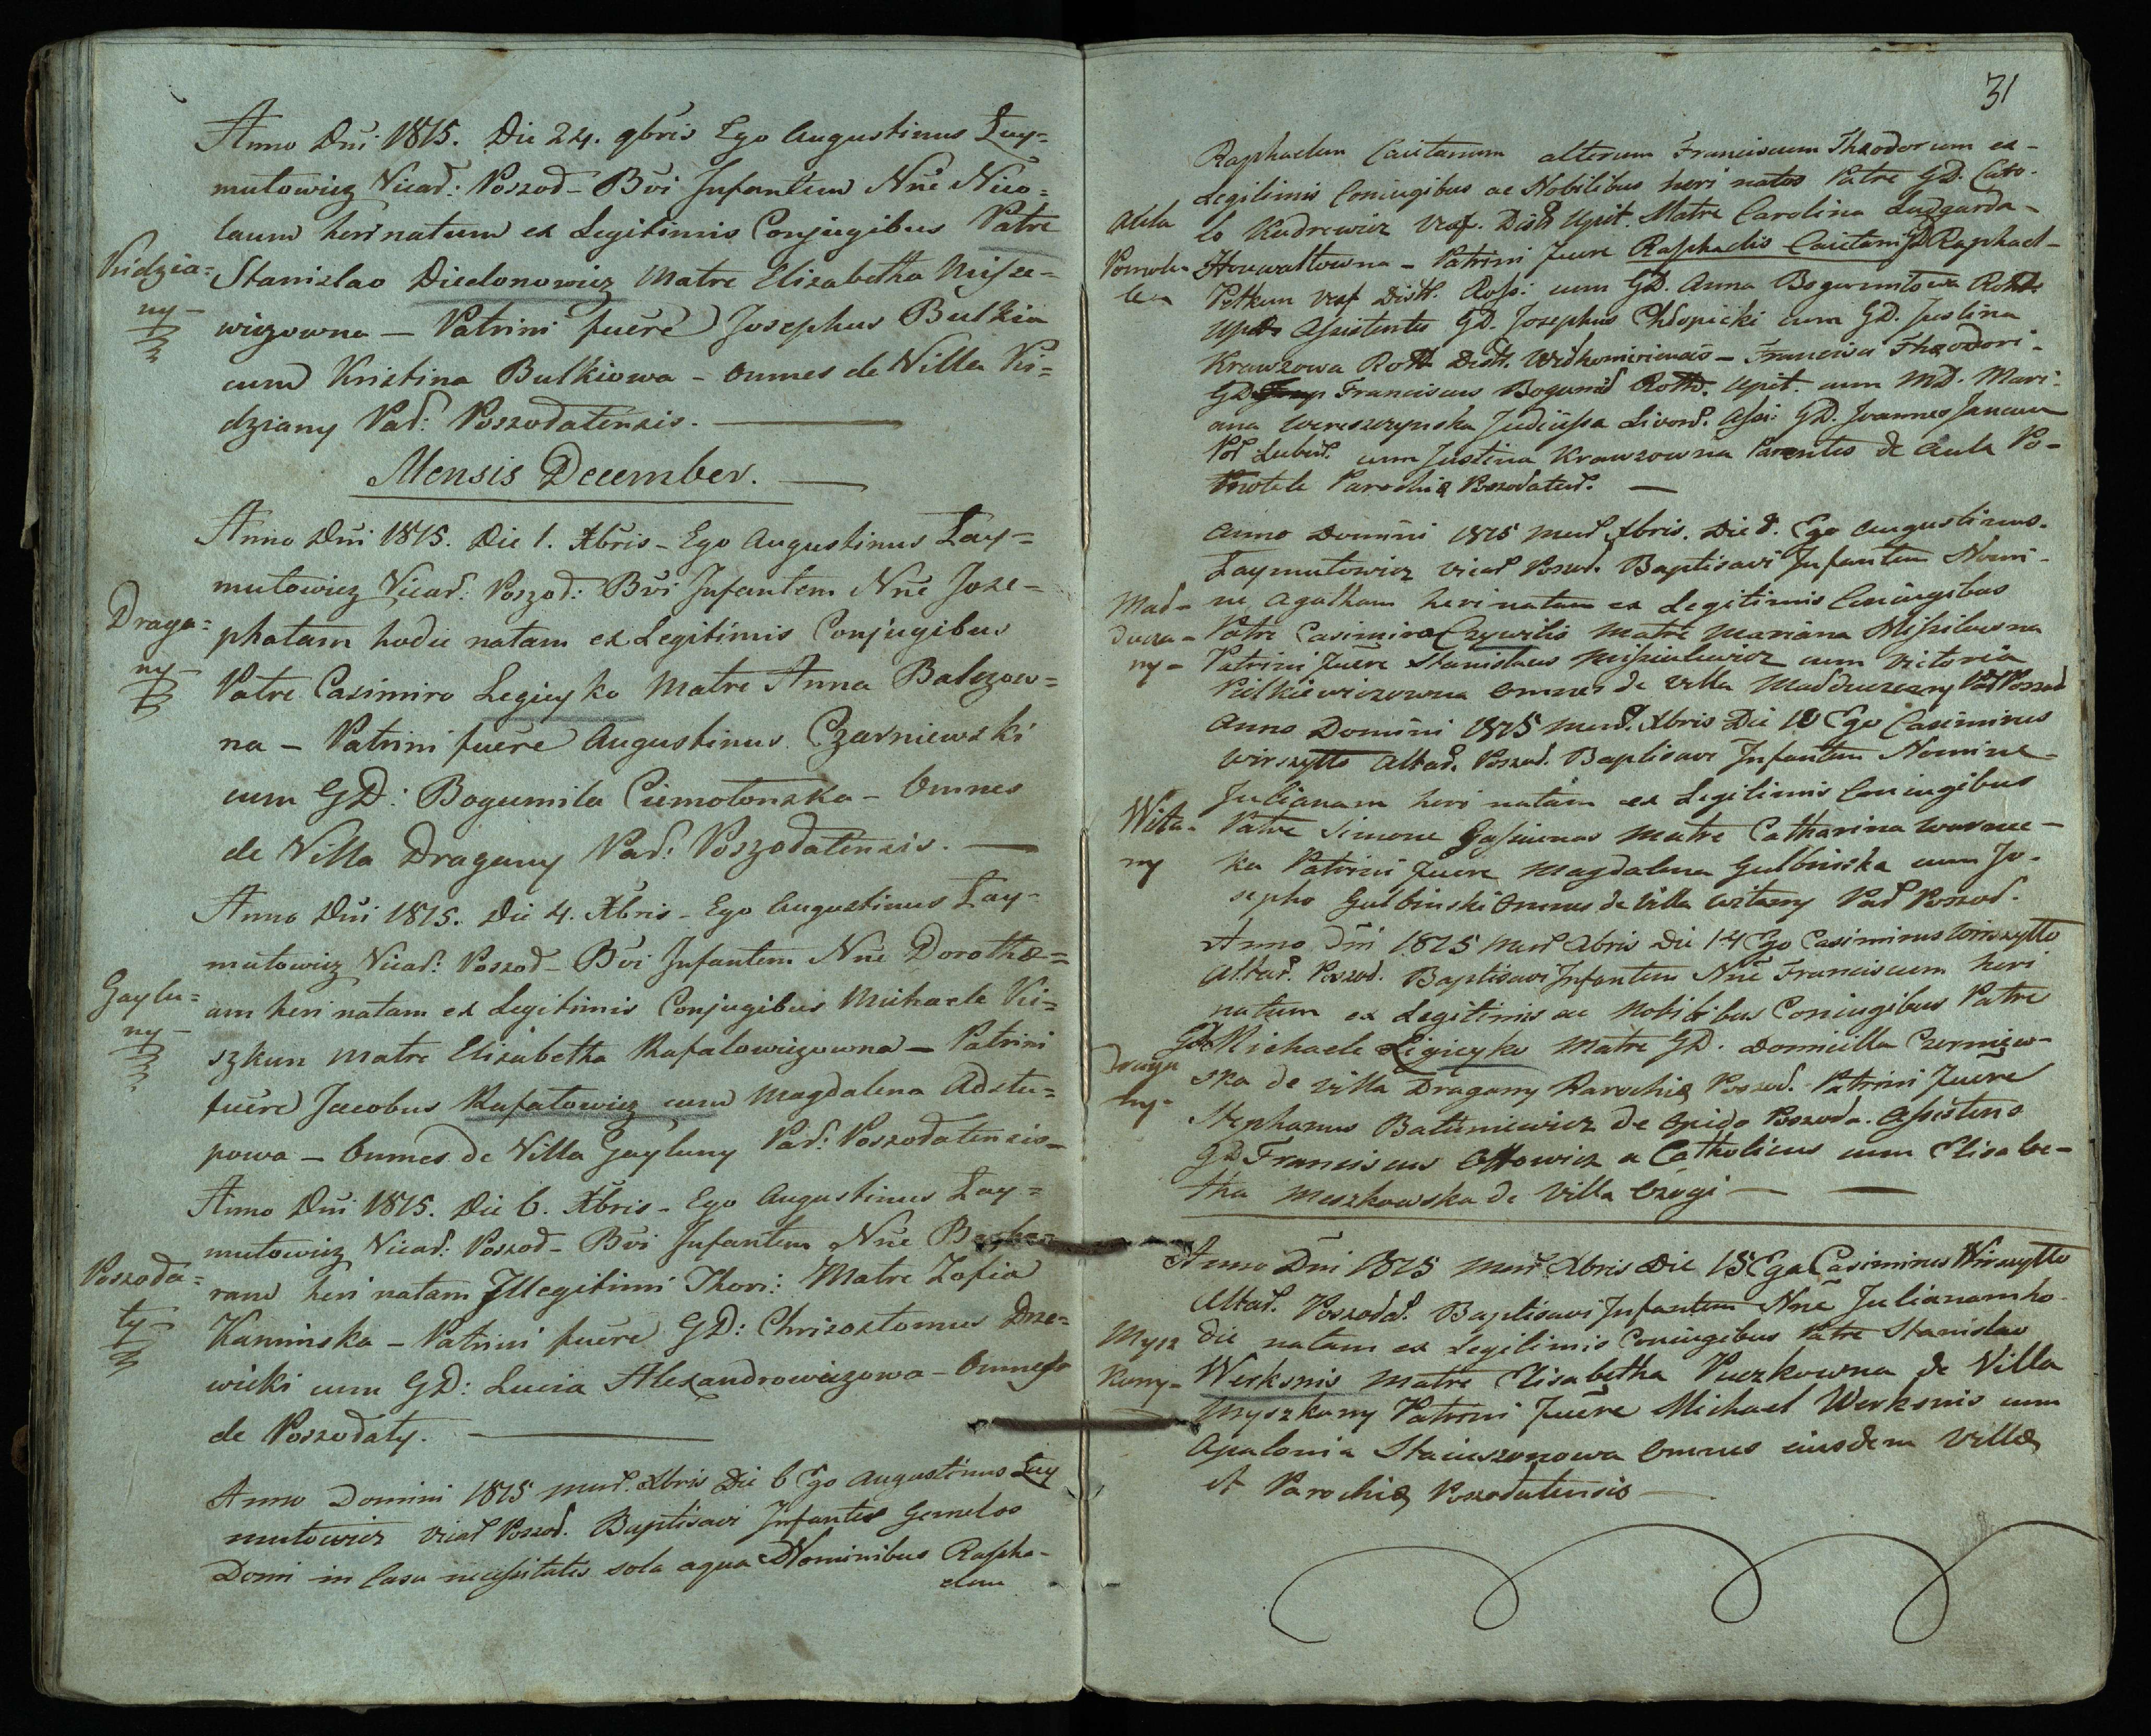 Anno Dñi 1815. Die 24. 9bris Ego Augustinus Lay=
mutowicz Vicar: Poszod- Bvi Infantem Nñe Nico=
laum heri natum ex Legitimis Conjugibus Patre
Kidzia= Stanislao Diedonowicz Matre Elisabetha
ny- wiczowna – Patrini fuēre Josephus Bulkia
cum Kristina Bulkiowa – Omnes de Villa Ki=
dziany Par: Poszodatensis.
Mensis December.
Anno Dñi 1815. Die 1. Xbris – Ego Augustinus Lay=
mutowicz Vicar: Poszod: Bvi Infantem Nñe Joze=
Draga= phatam hodie natam ex Legitimis Conjugibus
ny- Patre Casimiro Legieyko Matre Anna Balczow=
na – Patrini fuēre Augustinus Czarniewski
cum GD: Bogumila Ciemolonska – Omnes
de Villa Dragany Par: Poszodatensis.
Anno Dñi 1815. Die 4. Xbris – Ego Augustinus Lay=
mutowicz Vicar: Poszod – Bvi Infantem Nñe Dorothe=
Gaylu= am heri natam ex Legitimis Conjugibus Michaele Ki=
ny- szkun Matre Elisabetha Rafalowiczowna – Patrini
fuēre Jacobus Rafalowicz cum Magdalena Adstu=
powa – Omnes de Villa Gayluny Par: Poszodatensis –
Anno Dñi 1815. Die 6. Xbris – Ego Augustinus Lay=
mutowicz Vicar: Poszod – Bvi Infantem Nñe
Poszoda= ram heri natam Illegitimi Thori: Matre Zofia
ty- Kaminska – Patrini fuēre GD: Chrizostomus Drze=
wicki cum GD: Lucia Alexandrowiczowa – Omnes
de Poszodaty.
Anno Domini 1815 mens. Xbris Die 6 Ego Augustinus Lay
mutowicz vicar Poszod. Baptisavi Infantes Gemelos
Domi in Casu necessitatis sola aqua Nominibus Rapha-
elem
31
Raphaelem Caietanum alterum Franciscum Theodorum ex-
Legitimis Coniugibus ac Nobilibus heri natos Patre GD. Caro-
Aula lo Kudrewicz Distr Upit. Matre Carolina Ludgarda-
Howwaltowna – Patrini fuere Raphaelis Caietani GD Raphael-
Petkun Distr. cum GD. Anna Bogumilowa Rottr
Assistentes GD. Josephus Chlopicki cum GD. Justina
Krawzowa Rottr Distr. – Francisci Theodori-
GD Franciscus Rottr. Upit. cum MD. Mari-
ana Wereszczynska Livon. Assi: GD. Joannes
cum Justina Krawzowna Parentes de Aula Po-
Parochiæ Poszodaten.
Anno Domini 1815 Mens Xbris. Die 8. Ego Augustinus
Laymutowicz vicar Poszod. Baptisavi Infantem Nomi-
Mad- ne Agatham heri natam ex Legitimis Coniugibus
Patre Casimiro Czywilis Matre Mariana
ny- Patrini fuere Stanislaus cum Victoria
Pielkiewiczowna Omnes de Villa Par Poszod
Anno Domini 1815 Mens. Xbris Die 10 Ego Casimirus
Wirszytto Altar. Poszod. Baptisavi Infantem Nomine-
Julianam heri natam ex Legitimis Coniugibus
Wita- Patre Simone Matre Catharina
ny ka Patrini fuere Magdalena Gulbinska cum Jo-
sepho Gulbinski Omnes de Villa Witany Par Poszod.
Anno Dñi 1815 Mens Xbris Die 14 Ego Casimirus Wirszytto
Altar. Poszod. Baptisavi Infantem Nñe Franciscum heri
natum ex Legitimis ac Nobilibus Coniugibus Patre
GD Michaele Ligieyko Matre GD. Domicilla Czerniew-
Draga ska de Villa Dragany Parochiæ Poszod. Patrini fuēre
ny- Stephanus Baluniewicz de Opido Poszoda. Assistens
GD Franciscus a Catholicus cum Elisabe-
tha Meszkowska de Villa
Anno Dñi 1815 Mens Xbris Die 15 Ego Casimirus Wirszytto
Altar. Poszodat. Baptisavi Infantem Nñe Julianam ho-
Mysz die natam ex Legitimis Coniugibus Patre Stanislao
kuny- Werksnis Matre Elisabetha Puszkowna de Villa
Myszkuny Patrini fuēre Michael Werksnis cum
Apalonia Staiuszonowa Omnes eiusdem Villæ
et Parochiæ Poszodatensis –